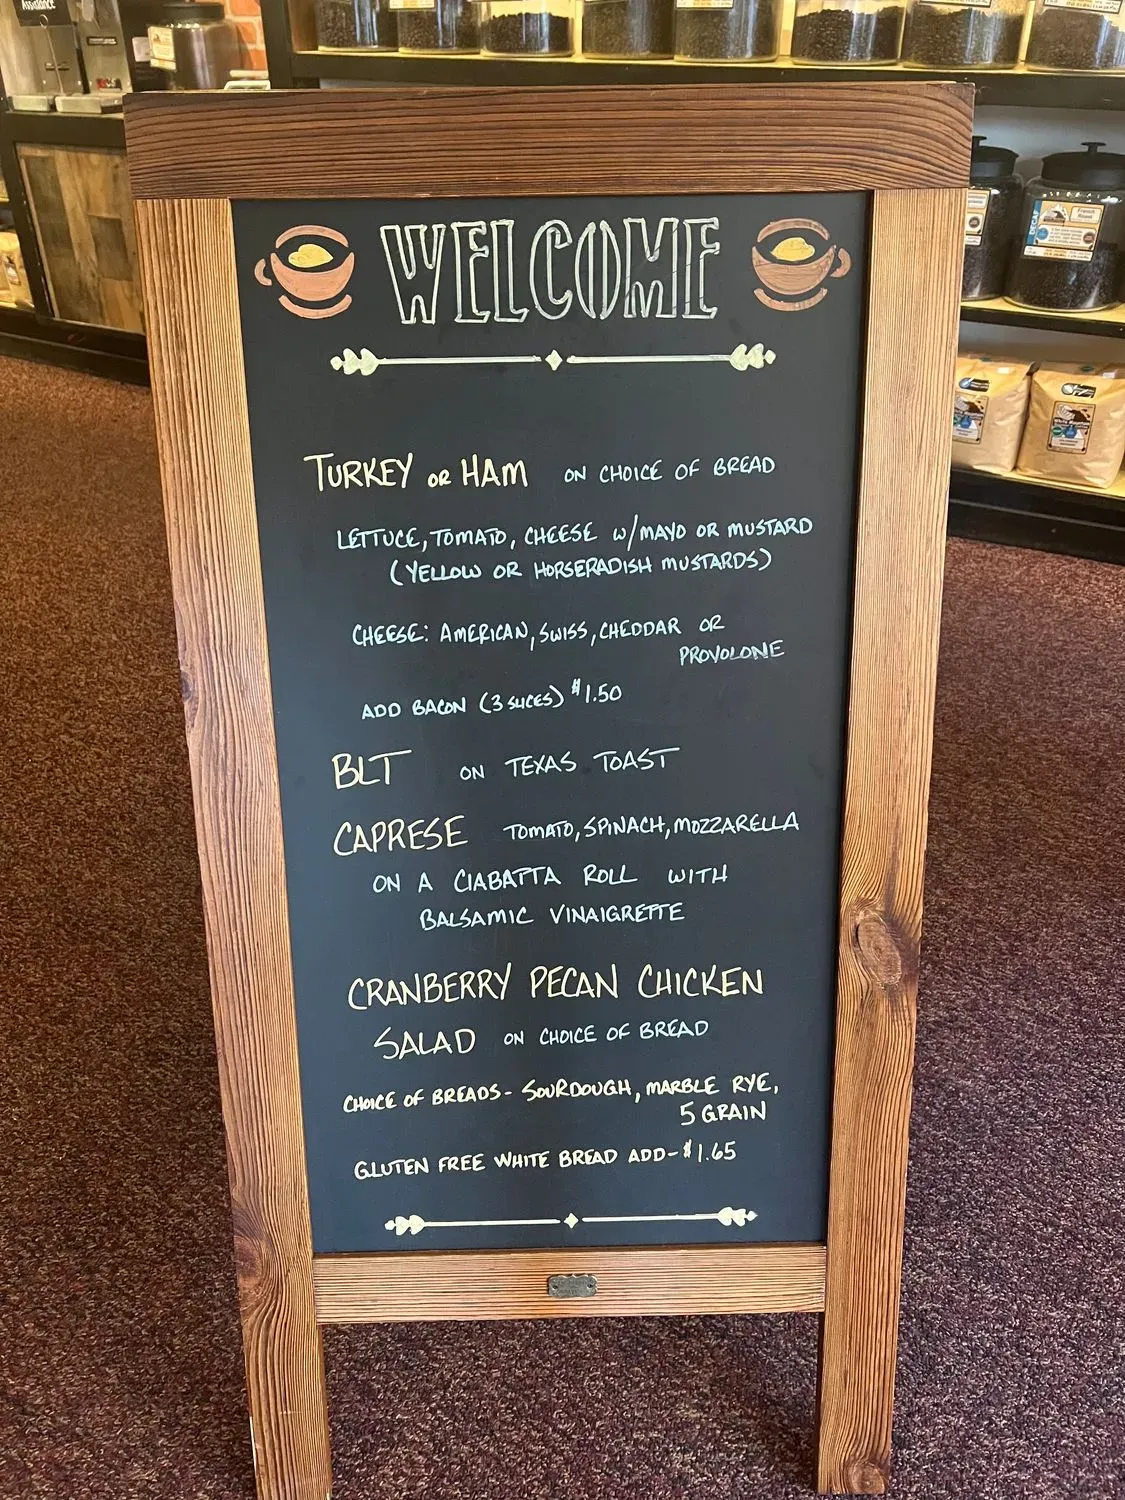 WELCOME
TURKEY OR HAM ON CHOICE OF BREAD
LETTUCE, TOMATO, CHEESE W/MAYO OR MUSTARD
(YELLOW OR HORSERADISH MUSTARDS)
CHEESE: AMERICAN, SWISS, CHEDDAR OR
PROVOLONE
ADD BACON (3 SLICES) $1.50
BLT ON TEXAS TOAST
CAPRESE TOMATO, SPINACH, MOZZARELLA
ON A CIABATTA ROLL WITH
BALSAMIC VINAIGRETTE
CRANBERRY PECAN CHICKEN
SALAD ON CHOICE OF BREAD
CHOICE OF BREADS- SOURDOUGH, MARBLE RYE,
5 GRAIN
GLUTEN FREE WHITE BREAD ADD-$1.65
Assistance
DECAF
French
Roast